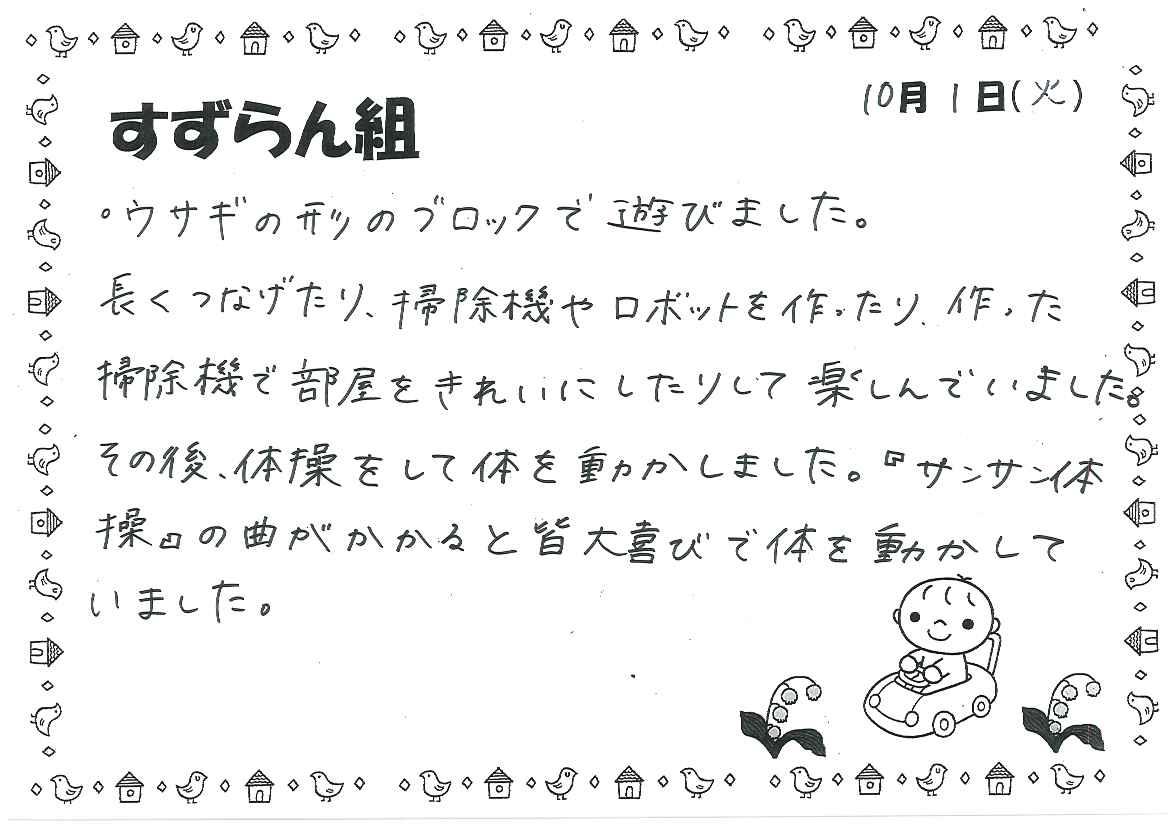 10月1日(火)
すずらん組
・ウサギの形のブロックで遊びました。
長くつなげたり、掃除機やロボットを作ったり、作った
掃除機で部屋をきれいにしたりして楽しんでいました。
その後、体操をして体を動かしました。『サンサン体
操』の曲がかかると皆大喜びで体を動かして
いました。